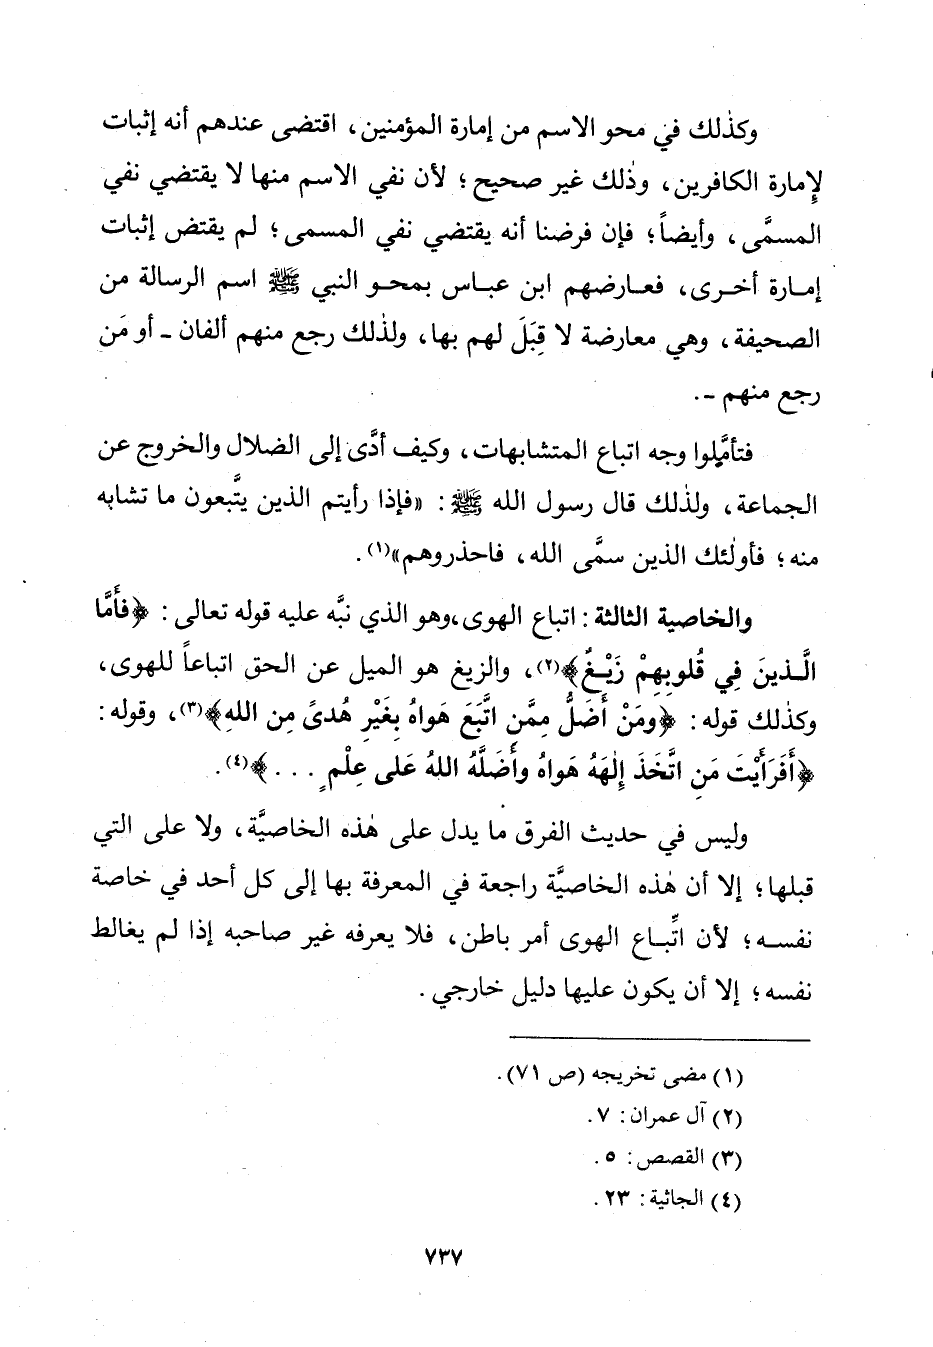 وكذٰلك في محو الاسم من إمارة المؤمنين، اقتضى عندهم أنه إثبات
لإِمارة الكافرين، وذٰلك غير صحيح؛ لأن نفي الاسم منها لا يقتضي نفي
المسمَّى، وأيضاً؛ فإن فرضنا أنه يقتضي نفي المسمى؛ لم يقتض إثبات
إمـارة أخـرى، فعـارضهم ابن عبـاس بمحـو النبي ﷺ اسم الرسالة من
الصحيفة، وهي معارضة لا قِبَلَ لهم بها، ولذٰلك رجع منهم ألفان ـ أو مَن
رجع منهم ـ.
فتأمَّلوا وجه اتباع المتشابهات، وكيف أدَّى إلى الضلال والخروج عن
الجماعة، ولذٰلك قال رسول الله ﷺ: «فإذا رأيتم الذين يتَّبعون ما تشابه
منه؛ فأولٰئك الذين سمَّى الله، فاحذروهم»(١).
والخاصية الثالثة: اتباع الهوى،وهو الذي نبَّه عليه قوله تعالى: ﴿فأَمَّا
الَّـذينَ فِي قُلوبِهِمْ زَيْـغٌ﴾(٢)، والزيغ هو الميل عن الحق اتباعاً للهوى،
وكذٰلك قوله: ﴿ومَنْ أَضَلُّ مِمَّن اتَّبَعَ هَواهُ بِغَيْرِ هُدىً مِن اللهِ﴾(٣)، وقوله:
﴿أَفَرَأَيْتَ مَنِ اتَّخَذَ إِلٰهَهُ هَواهُ وأَضَلَّهُ اللهُ عَلى عِلْمٍ . . .﴾(٤).
وليس في حديث الفرق ما يدل على هٰذه الخاصيَّة، ولا على التي
قبلها؛ إلا أن هٰذه الخاصيَّة راجعة في المعرفة بها إلى كل أحد في خاصة
نفسـه؛ لأن اتِّبـاع الهوى أمر باطن، فلا يعرفه غير صاحبه إذا لم يغالط
نفسه؛ إلا أن يكون عليها دليل خارجي.
(١) مضى تخريجه (ص ٧١).
(٢) آل عمران: ٧.
(٣) القصص: ٥.
(٤) الجاثية: ٢٣.
٧٣٧